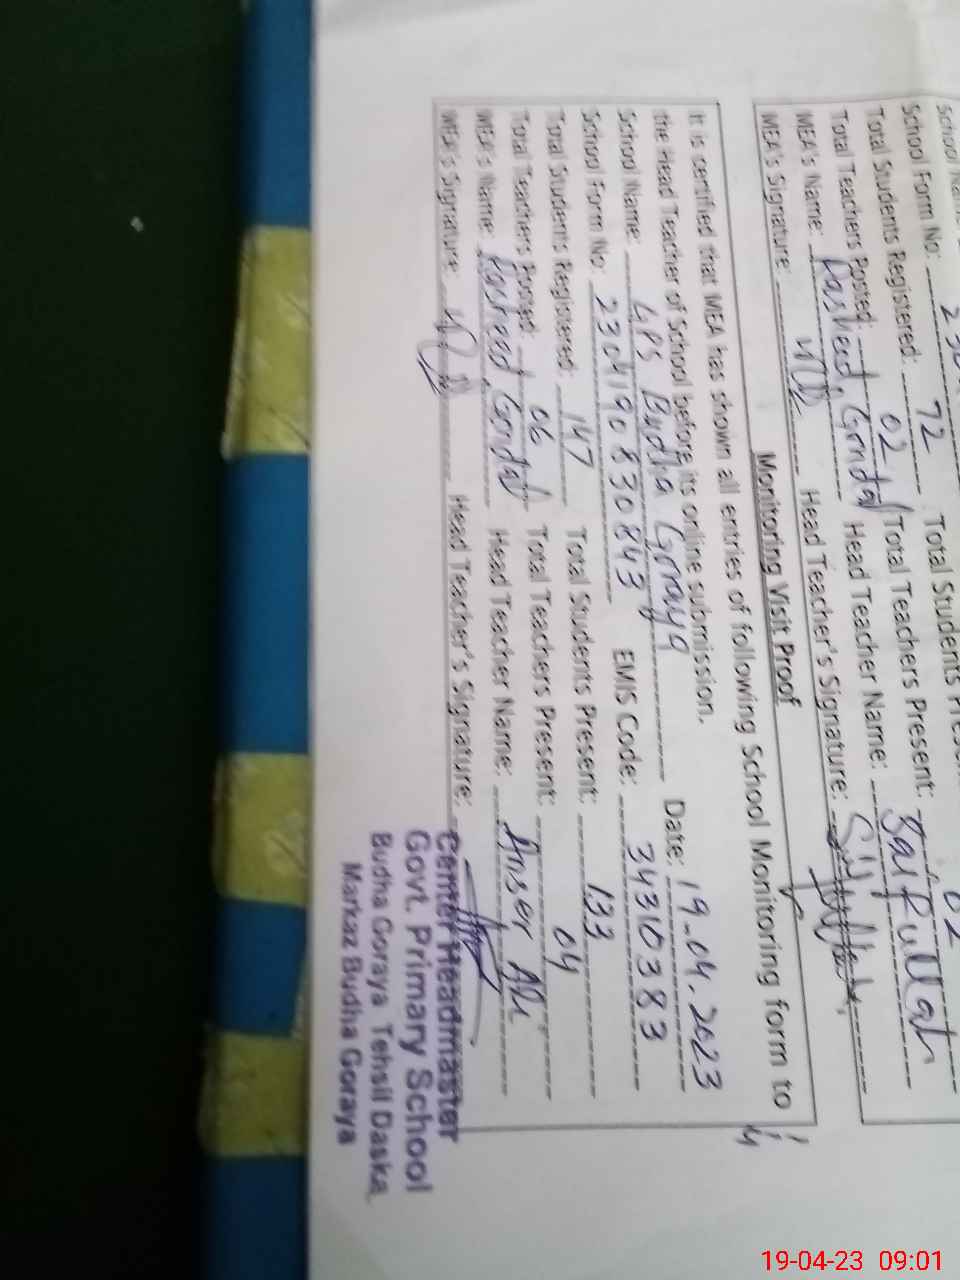 School Form No:
Total Students Registered: 72 Total Students
Total Teachers Posted: 02 Total Teachers Present: 02
MEA's Name: Rasheed Gondal Head Teacher Name: Saifullah
MEA's Signature: Head Teacher's Signature:
Monitoring Visit Proof
It is certified that MEA has shown all entries of following School Monitoring form to
the Head Teacher of School before its online submission.
School Name: GPS Budha Goraya Date: 19-04-2023
School Form No: 2304190830843 EMIS Code: 34310383
Total Students Registered: 147 Total Students Present: 133
Total Teachers Posted: 06 Total Teachers Present: 04
MEA's Name: Rasheed Gondal Head Teacher Name: Anser Ali
MEA's Signature: Head Teacher's Signature:
Center Headmaster
Govt. Primary School
Budha Goraya Tehsil Daska
Markaz Budha Goraya
19-04-23 09:01